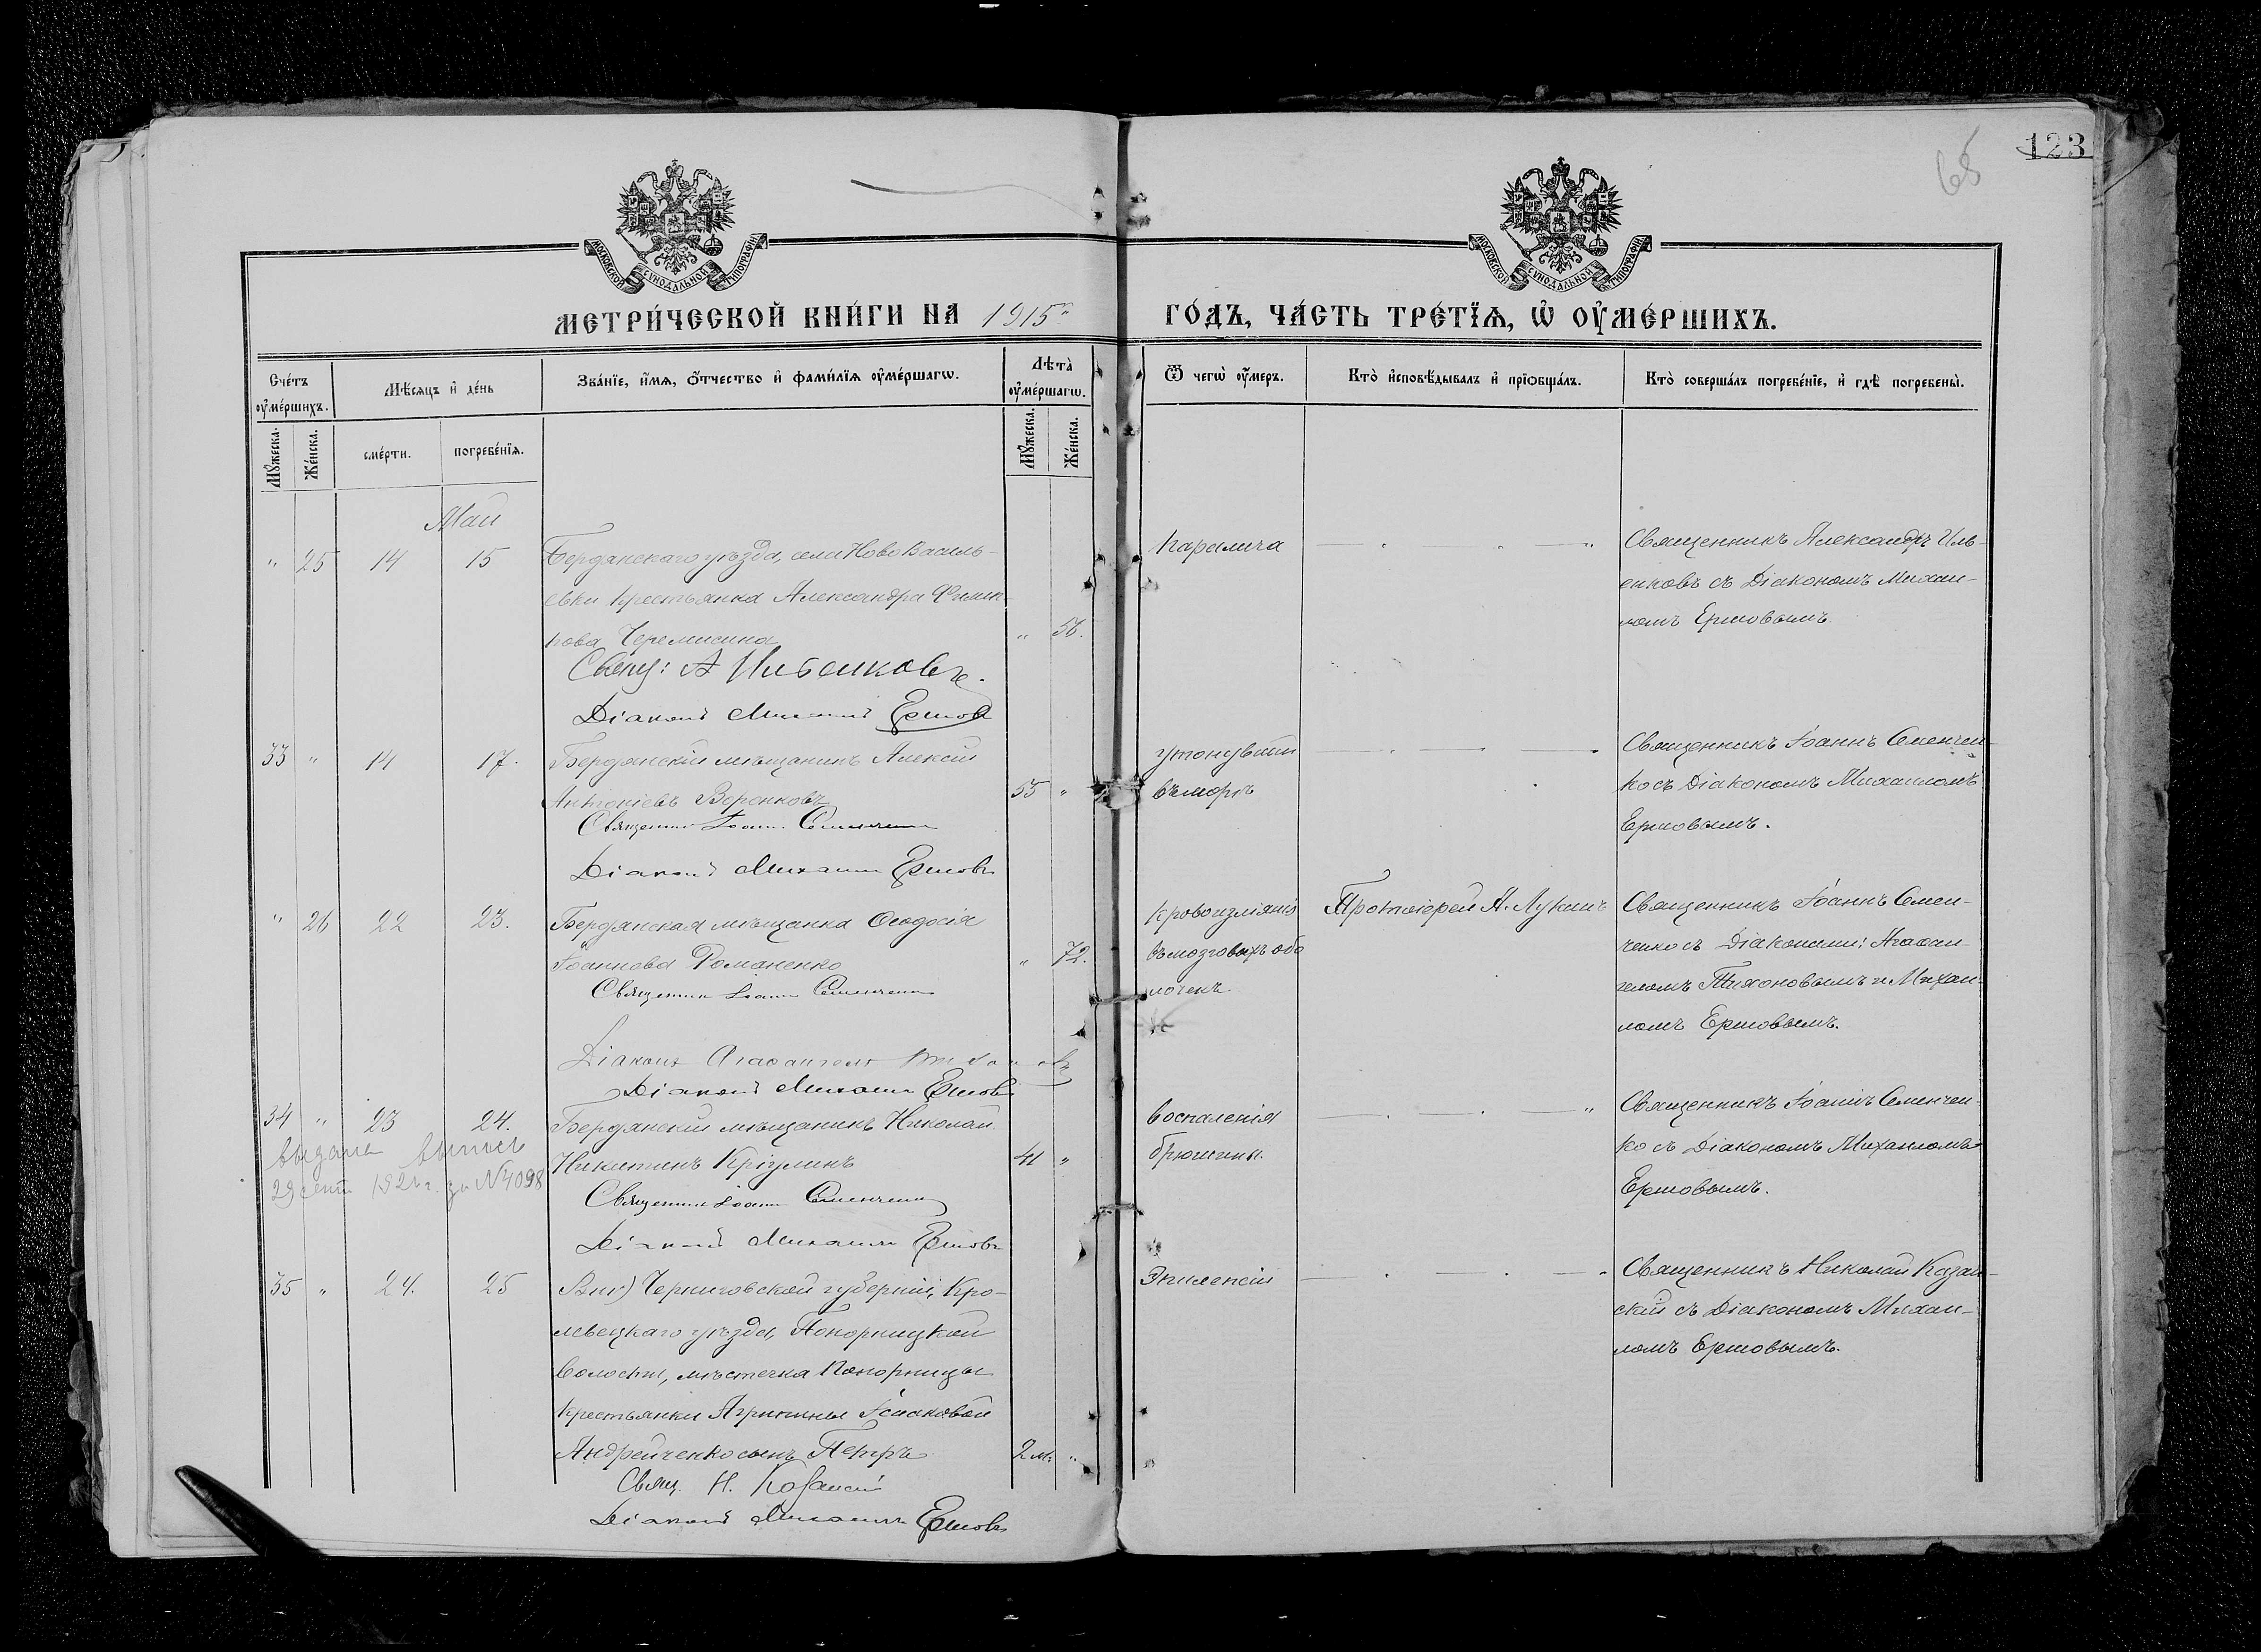 123
65
МОСКОВСКОЙ СУНОДАЛЬНОЙ ТИПОГРАФІИ
МОСКОВСКОЙ СУНОДАЛЬНОЙ ТИПОГРАФІИ
МЕТРИ́ЧЕСКОЙ КНИ́ГИ НА 1915 ГО́ДЪ, ЧА́СТЬ ТРЕ́ТЇѦ, Ѡ҆ ОУ҆МЕ́РШИХЪ.
Сче́тъ оу҆ме́ршихъ.
Мѣ́сяцъ и҆ де́нь
Зва́нїе, и҆́мѧ, ѻ҆́тчество и҆ фами́лїѧ оу҆ме́ршагѡ.
Лѣ́та оу҆ме́ршагѡ.
Ѿ чегѡ̀ оу҆́меръ.
Кто̀ и҆сповѣ́дывалъ и҆ прїѡбща́лъ.
Кто̀ соверша́лъ погребе́нїе, и҆ гдѣ̀ погребены̀.
Мꙋ́жеска.
Же́нска.
сме́рти.
погребе́нїѧ.
Мꙋ́жеска.
Же́нска.
Май
" 25 14 15 Бердянскаго уѣзда, села Ново Василь-
евки крестьянка Александра Филип-
пова Черемисина " 56.
Свящ: А Ильенковъ.
Діаконъ Михаилъ Ершовъ
паралича
Священникъ Александръ Иль-
енковъ съ Діакономъ Михаи-
ломъ Ершовымъ.
33 " 14 17. Бердянскій мѣщанинъ Алексій
Антоніевъ Воронковъ 55 "
Священникъ Іоаннъ Семенченко
Діаконъ Михаилъ Ершовъ
утонувшій
въ морѣ
Священникъ Іоаннъ Семенчен-
ко съ Діакономъ Михаиломъ
Ершовымъ.
" 26 22 23. Бердянская мѣщанка Ѳеодосія
Іоаннова Романенко " 72.
Священникъ Іоаннъ Семенченко
Діаконъ Агаѳангелъ Тихоновъ
Діаконъ Михаилъ Ершовъ
кровоизліянія
въ мозговыхъ обо
лочекъ
Протоіерей А. Лукинъ
Священникъ Іоаннъ Семен-
ченко съ Діаконами: Агаѳан-
геломъ Тихоновымъ и Михаи-
ломъ Ершовымъ.
34 " 23 24. Бердянскій мѣщанинъ Николай
Никитинъ Крігулинъ 41 "
Священникъ Іоаннъ Семенченко
Діаконъ Михаилъ Ершовъ
выдана выпись
29 сент. г. за № 4098
воспаленія
брюшины.
Священникъ Іоаннъ Семенчен-
ко съ Діакономъ Михаиломъ
Ершовымъ.
35 " 24. 25 Черниговской губерніи, Кро-
левецкаго уѣзда, Понорницкой
волости, мѣстечка Понорницы
крестьянки Агрипины Ісааковой
Андрейченко сынъ Петръ 2 м. "
Свящ. Н. Казанскій
Діаконъ Михаилъ Ершовъ
Эпилепсіи
Священникъ Николай Казан-
скій съ Діакономъ Михаи-
ломъ Ершовымъ.